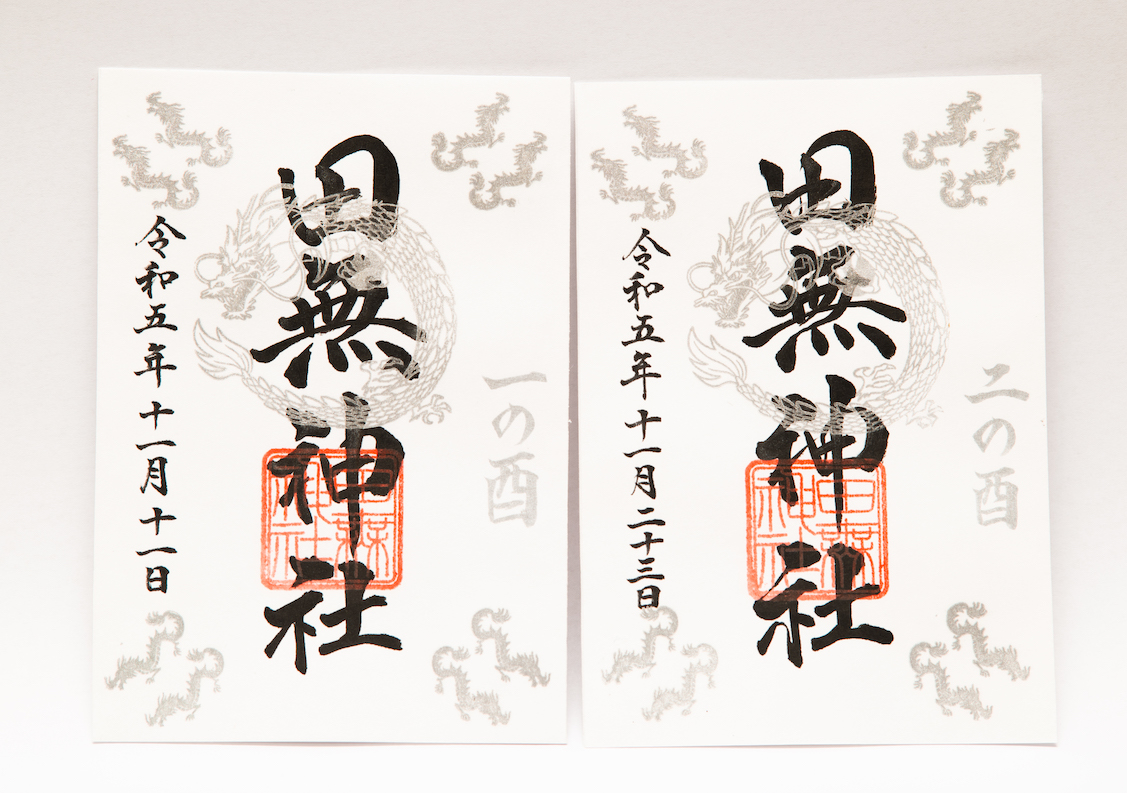 一の酉
田無神社
田無神社
令和五年十一月十一日
二の酉
田無神社
田無神社
令和五年十一月二十三日